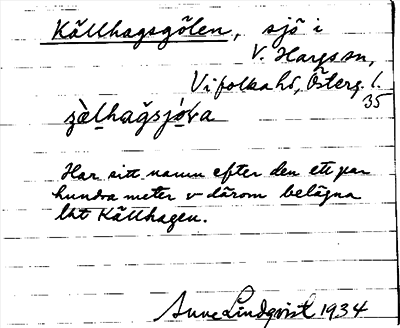 Källhagsgölen, sjö i
V. Hargs sn,
Vifolka hd, Österg. l.
35
zѐlhagsjöva
Har sitt namn efter den ett par
hundra meter v därom belägna
lät Källhagen.
Sune Lindqvist 1934